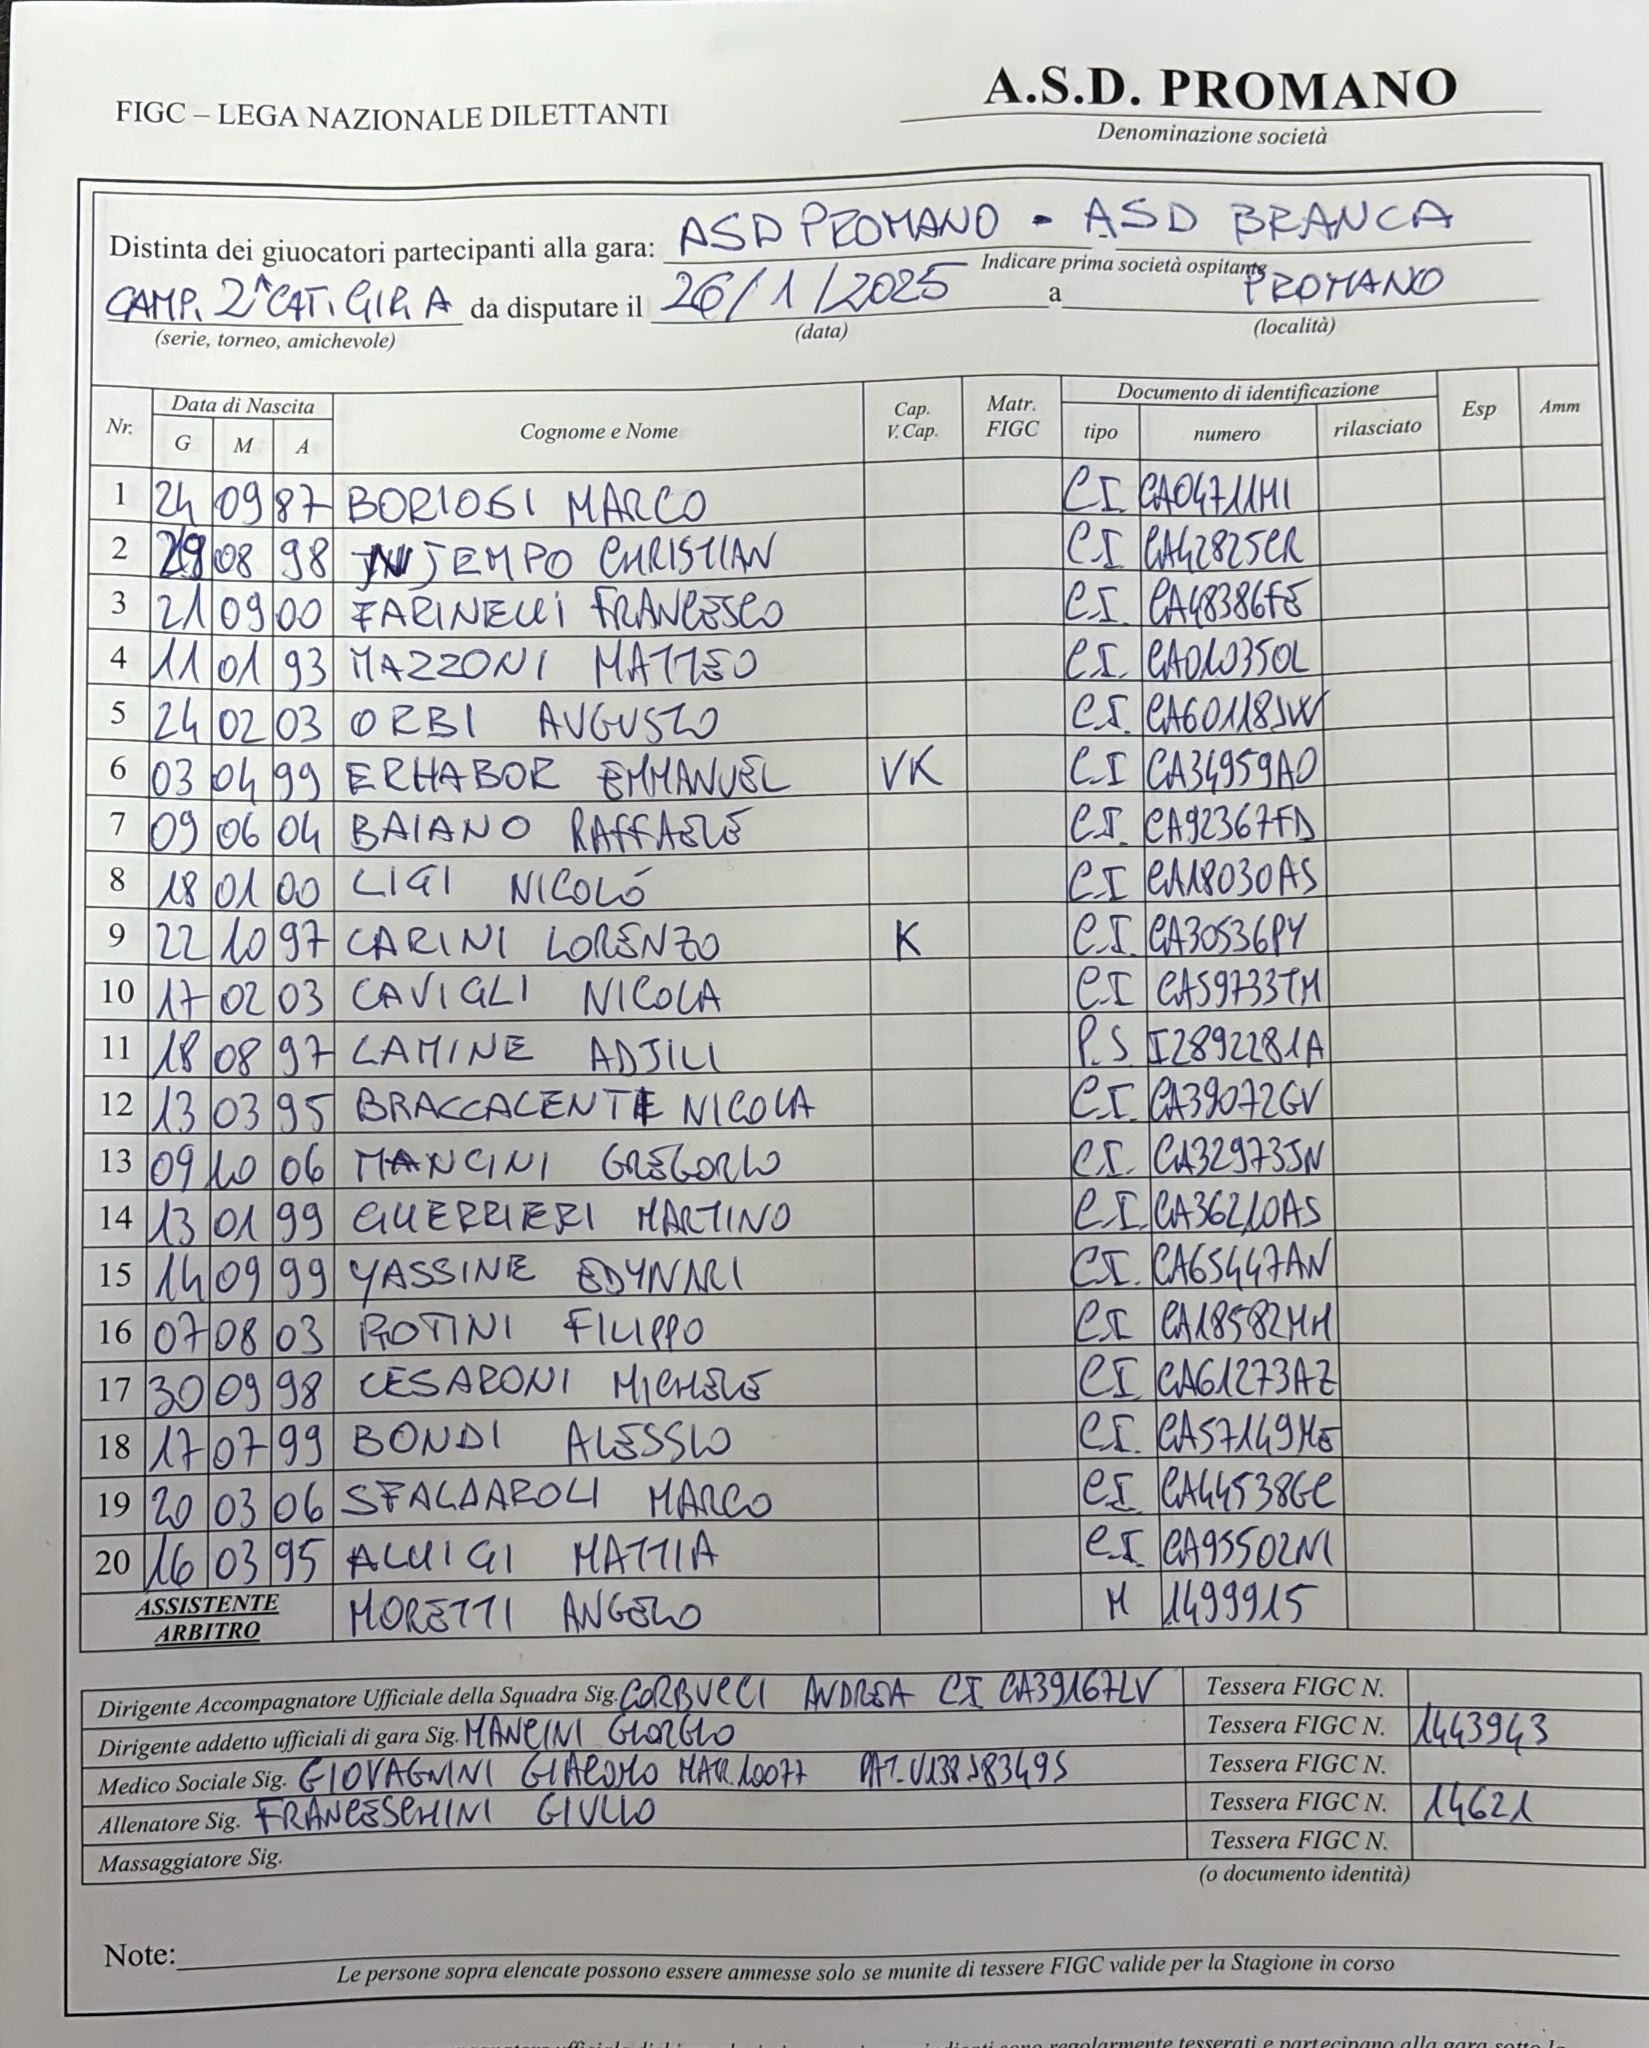 A.S.D. PROMANO
FIGC – LEGA NAZIONALE DILETTANTI
Denominazione società
Distinta dei giuocatori partecipanti alla gara: ASD PROMANO - ASD BRANCA
Indicare prima società ospitante
CAMP. 2^ CAT. GIR A da disputare il 26/1/2025 a PROMANO
(serie, torneo, amichevole) (data) (località)
Nr. Data di Nascita G M A Cognome e Nome Cap. V. Cap. Matr. FIGC Documento di identificazione tipo numero rilasciato Esp Amm
1 24 09 87 BORIOSI MARCO C.I. CA04711HI
2 29 08 98 TEMPO CHRISTIAN C.I. CA42825CR
3 21 09 00 FARINELLI FRANCESCO C.I. CA48386FE
4 11 01 93 MAZZONI MATTEO C.I. CA01035OL
5 24 02 03 ORBI AUGUSTO C.I. CA60118JW
6 03 04 99 ERHABOR EMMANUEL VK C.I. CA34959AO
7 09 06 04 BAIANO RAFFAELE C.I. CA92367FD
8 18 01 00 LIGI NICOLÓ C.I. CA18030AS
9 22 10 97 CARINI LORENZO K C.I. CA30536PY
10 17 02 03 CAVIGLI NICOLA C.I. CA59733TM
11 18 08 97 LAMINE ADJILI P.S I2892281A
12 13 03 95 BRACCALENTE NICOLA C.I. CA39072GV
13 09 10 06 MANCINI GREGORIO C.I. CA32973JN
14 13 01 99 GUERRIERI MARTINO C.I. CA36210AS
15 14 09 99 YASSINE C.I. CA65447AN
16 07 08 03 ROTINI FILIPPO C.I. CA18582MH
17 30 09 98 CESARONI MICHELE C.I. CA61273AZ
18 17 07 99 BONDI ALESSIO C.I. CA57149ME
19 20 03 06 SFALDAROLI MARCO C.I. CA44538GC
20 16 03 95 ALUIGI MATTIA C.I. CA95502NI
ASSISTENTE ARBITRO MORETTI ANGELO M 1499915
Dirigente Accompagnatore Ufficiale della Squadra Sig. CORBUCCI ANDREA CI CA39167LV Tessera FIGC N.
Dirigente addetto ufficiali di gara Sig. MANCINI GIORGIO Tessera FIGC N. 1443943
Medico Sociale Sig. GIOVAGNINI GIACOMO MAR.10077 PAT. Tessera FIGC N.
Allenatore Sig. FRANCESCHINI GIULIO Tessera FIGC N. 14621
Massaggiatore Sig. Tessera FIGC N.
(o documento identità)
Note:
Le persone sopra elencate possono essere ammesse solo se munite di tessere FIGC valide per la Stagione in corso